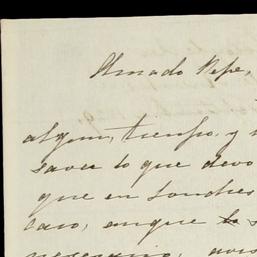 Amado Pepe,
algun tiempo, y
saver lo que devo
que en Londres
caso, aunque lo s
necesario, avis